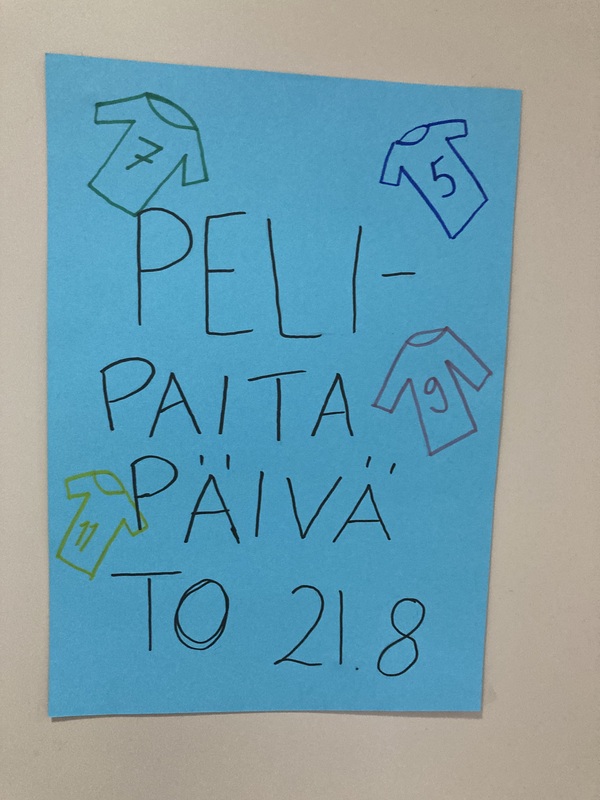 7
5
PELI-
PAITA
9
PÄIVÄ
11
TO 21.8